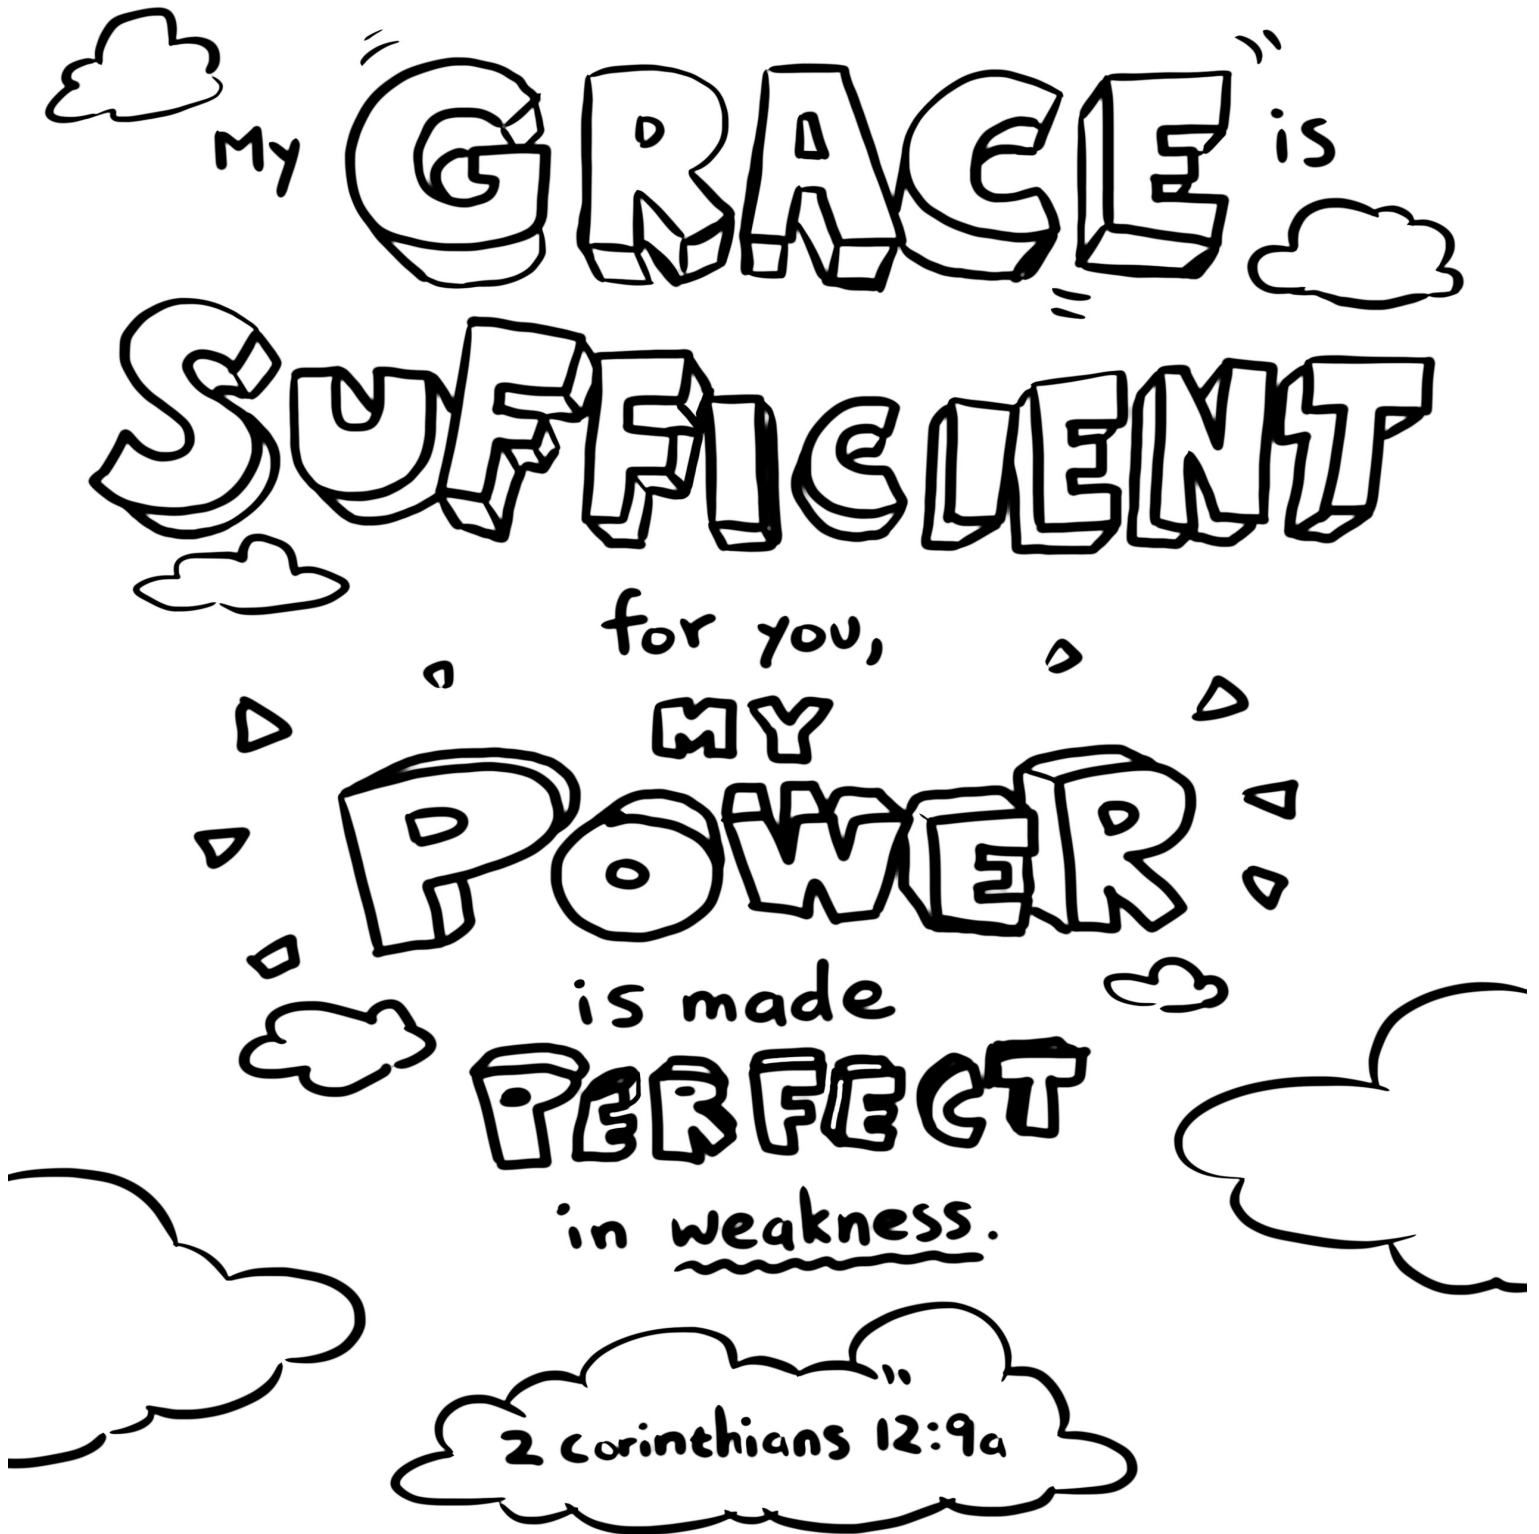 My GRACE is
SUFFICIENT
for you,
MY
POWER
is made
PERFECT
in weakness.
2 Corinthians 12:9a